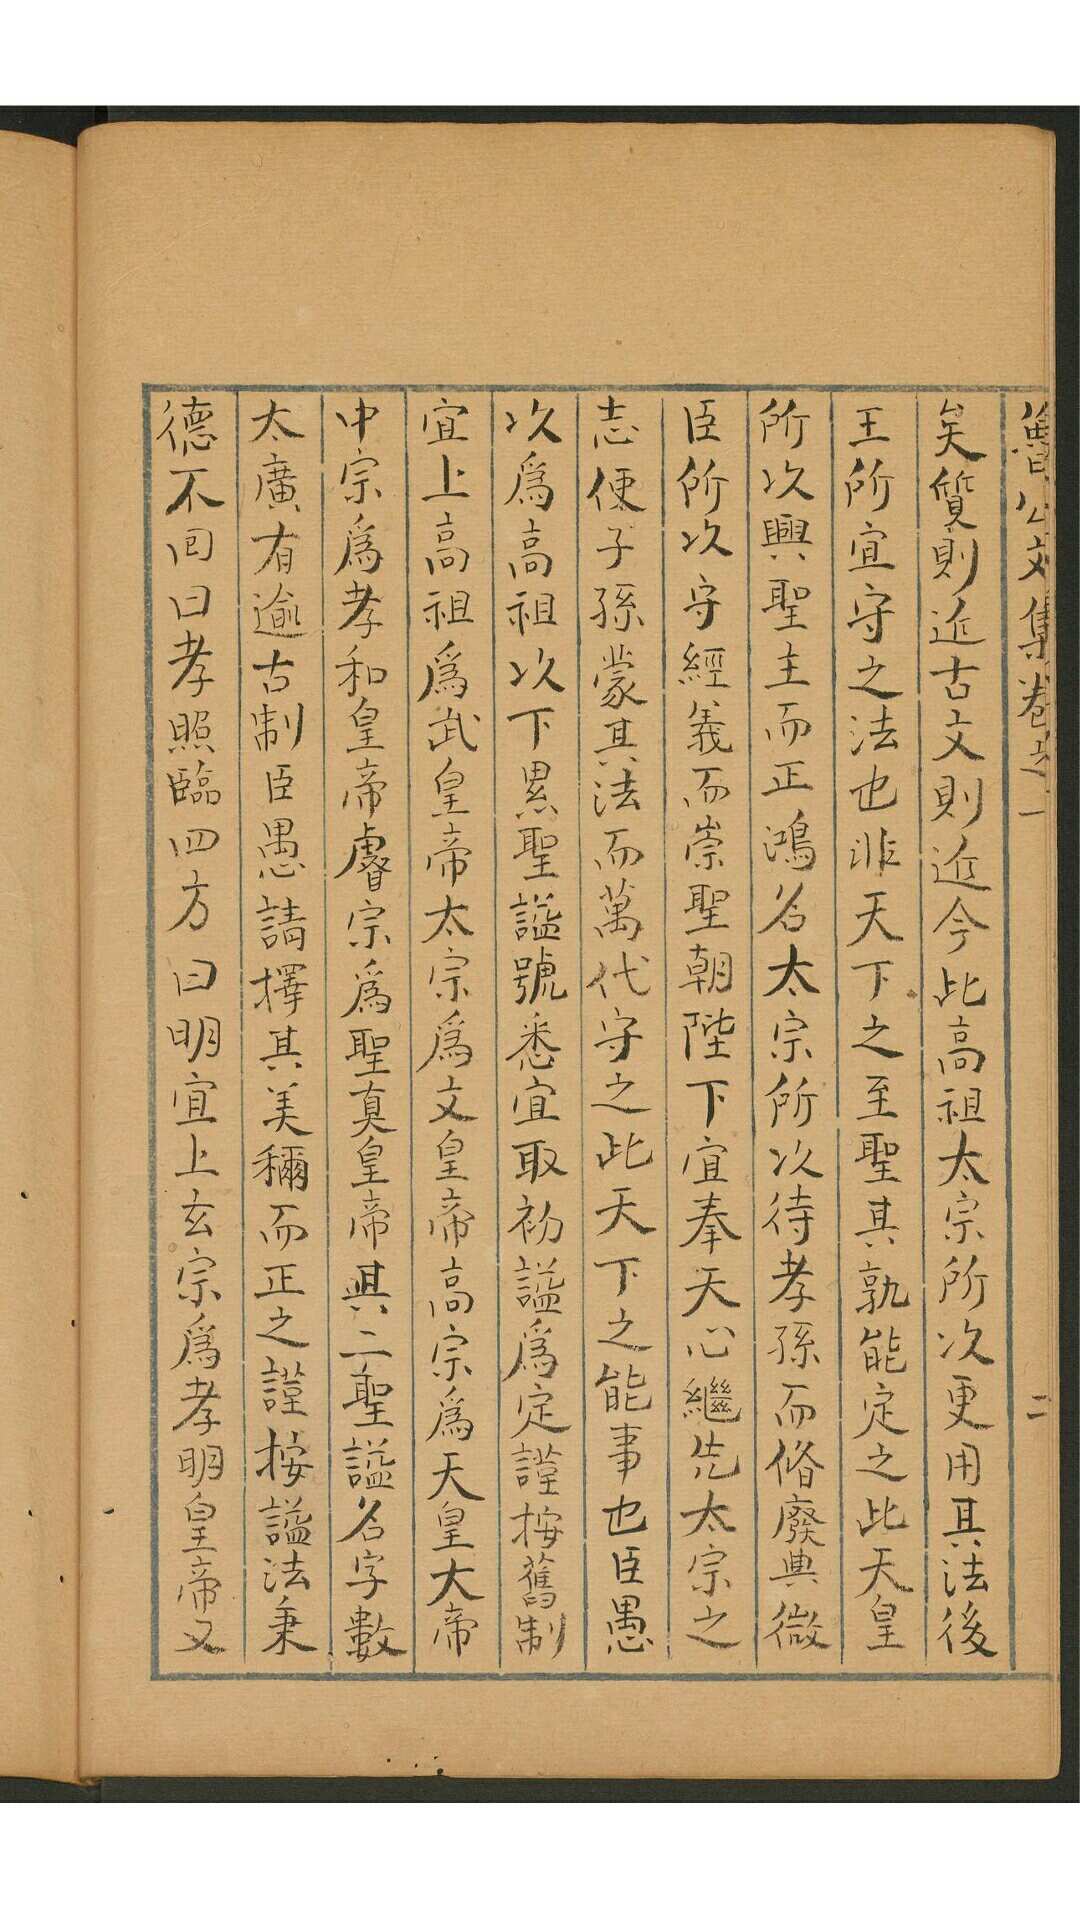 魯公文集卷之一 二
矣質則近古文則近今此高祖太宗所次更用其法後
王所宜守之法也非天下之至聖其孰能定之此天皇
所次興聖主而正鴻名太宗所次待孝孫而脩廢典微
臣所次守經義而崇聖朝陛下宜奉天心繼先太宗之
志便子孫蒙其法而萬代守之此天下之能事也臣愚
次爲高祖次下累聖諡號悉宜取初諡爲定謹按舊制
宜上高祖爲武皇帝太宗爲文皇帝高宗爲天皇大帝
中宗爲孝和皇帝睿宗爲聖真皇帝其二聖諡名字數
太廣有逾古制臣愚請擇其美稱而正之謹按諡法秉
德不回曰孝照臨四方曰明宜上玄宗爲孝明皇帝又